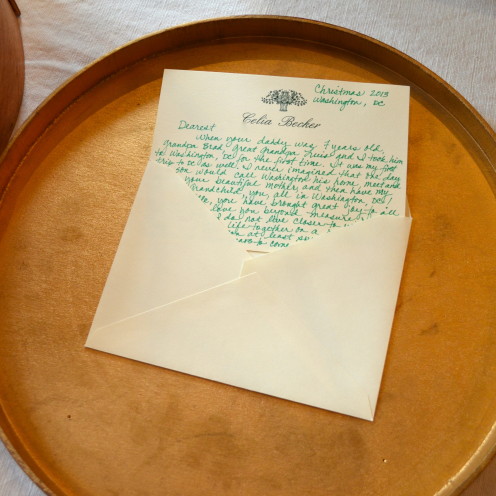 Christmas 2013
Washington, DC
Celia Becker
Dearest
When your daddy was 7 years old,
Grandpa Brad, great grandpa and I took him
to Washington, DC for the first time. It was my first
trip to DC as well. I never imagined that one day
you would call Washington his home, meet and
your beautiful mother, and then have my
grandchild, you all in Washington, DC!
you have brought great joy to all
love you beyond measure
I do not live closer to
life together on a
at least
to come